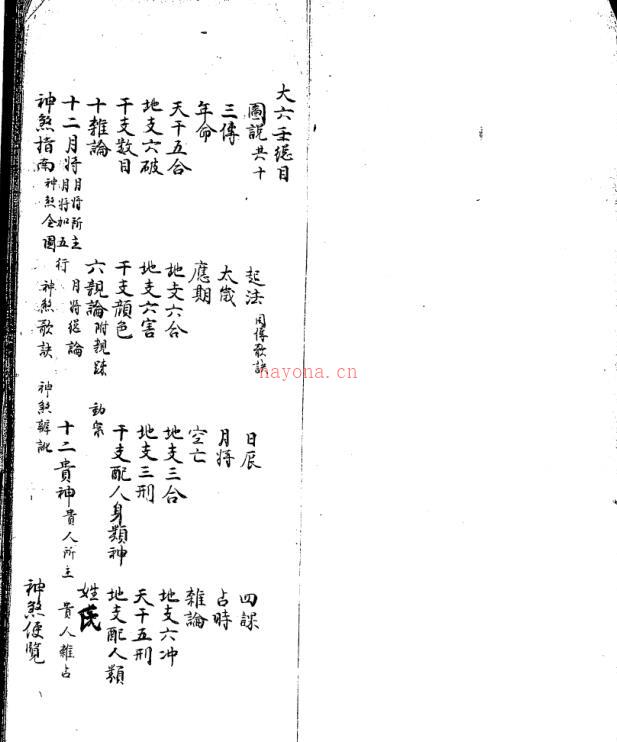 大六壬總目
圖說共十 起法 日辰 四課
三傳 太歲 月將 占時
年命 應期 空亡 雜論
天干五合 地支六合 地支三合 地支六冲
地支六破 地支六害 地支三刑 天干五刑
干支數目 干支顏色 干支配人身類神 地支配人類
十雜論 六親論附親疎 姓氏
十二月將月將所主月將加五行 月將總論 十二貴神貴人所主 貴人雜占
神煞指南神煞全圖 神煞歌訣 神煞辯訛 神煞便覽
hayona.cn